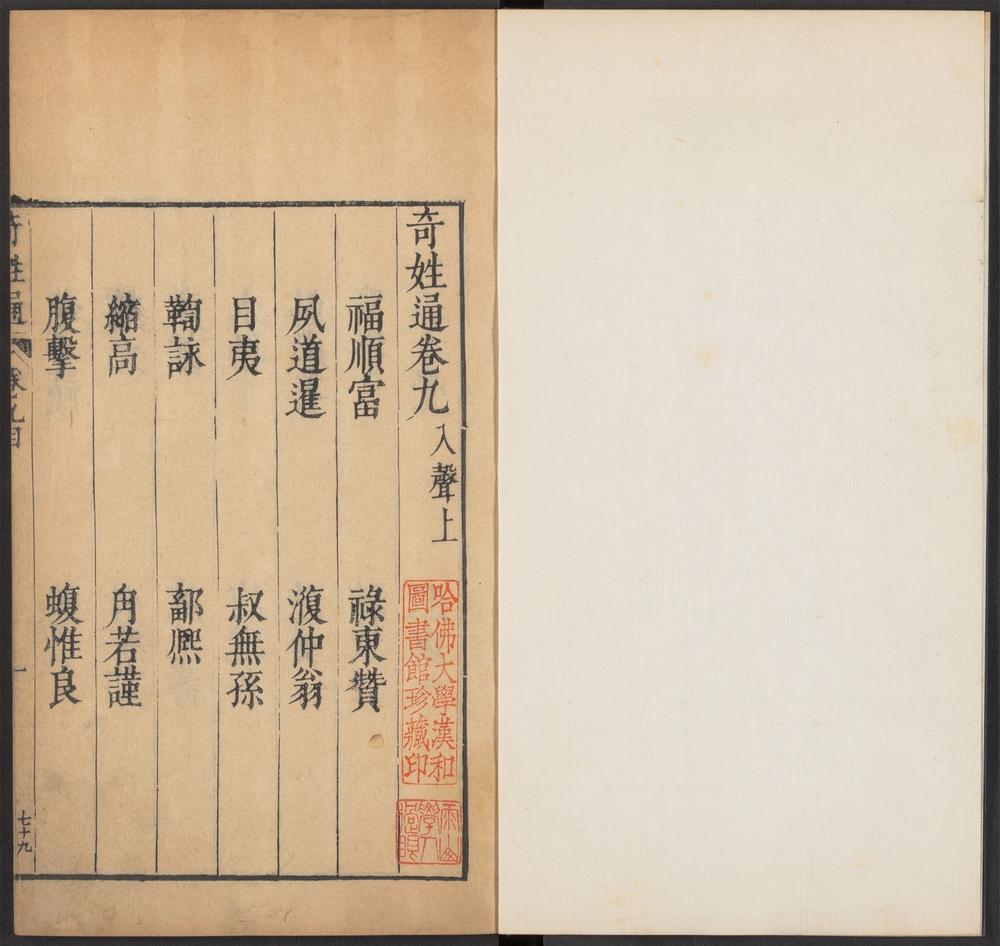 奇姓通卷九入聲上
哈佛大學漢和
圖書館珍藏印
福順富
祿東贊
夙道暹
澓仲翁
目夷
叔無孫
鞫詠
鄐熈
縮高
角若謹
腹擊
蝮惟良
奇姓通 卷九目
一
七十九